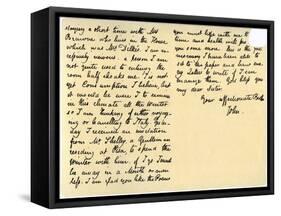 staying a short time with Mrs
Brawne who lives in the House
which was Mr Dilke's. I am
excessively nervous: a person I am
not quite used to entering the
room half choaks me. 'Tis not
yet Consumption I believe, but
it would be were I to remain
in this climate all the Winter:
so I am thinking of either voyag-
ing or travelling to Italy. Yester-
day I received an invitation
from Mr Shelley, a Gentleman
residing at Pisa, to spend the
Winter with him: if I go I must
be away in a Month or even
less. I am glad you like the Poems
you must hope with me that
time and health will produce
you some more. This is the first
morning I have been able to
sit to the paper and have many
Letters to write if I can
manage them. God bless you
my dear Sister.
Your affectionate Brother
John